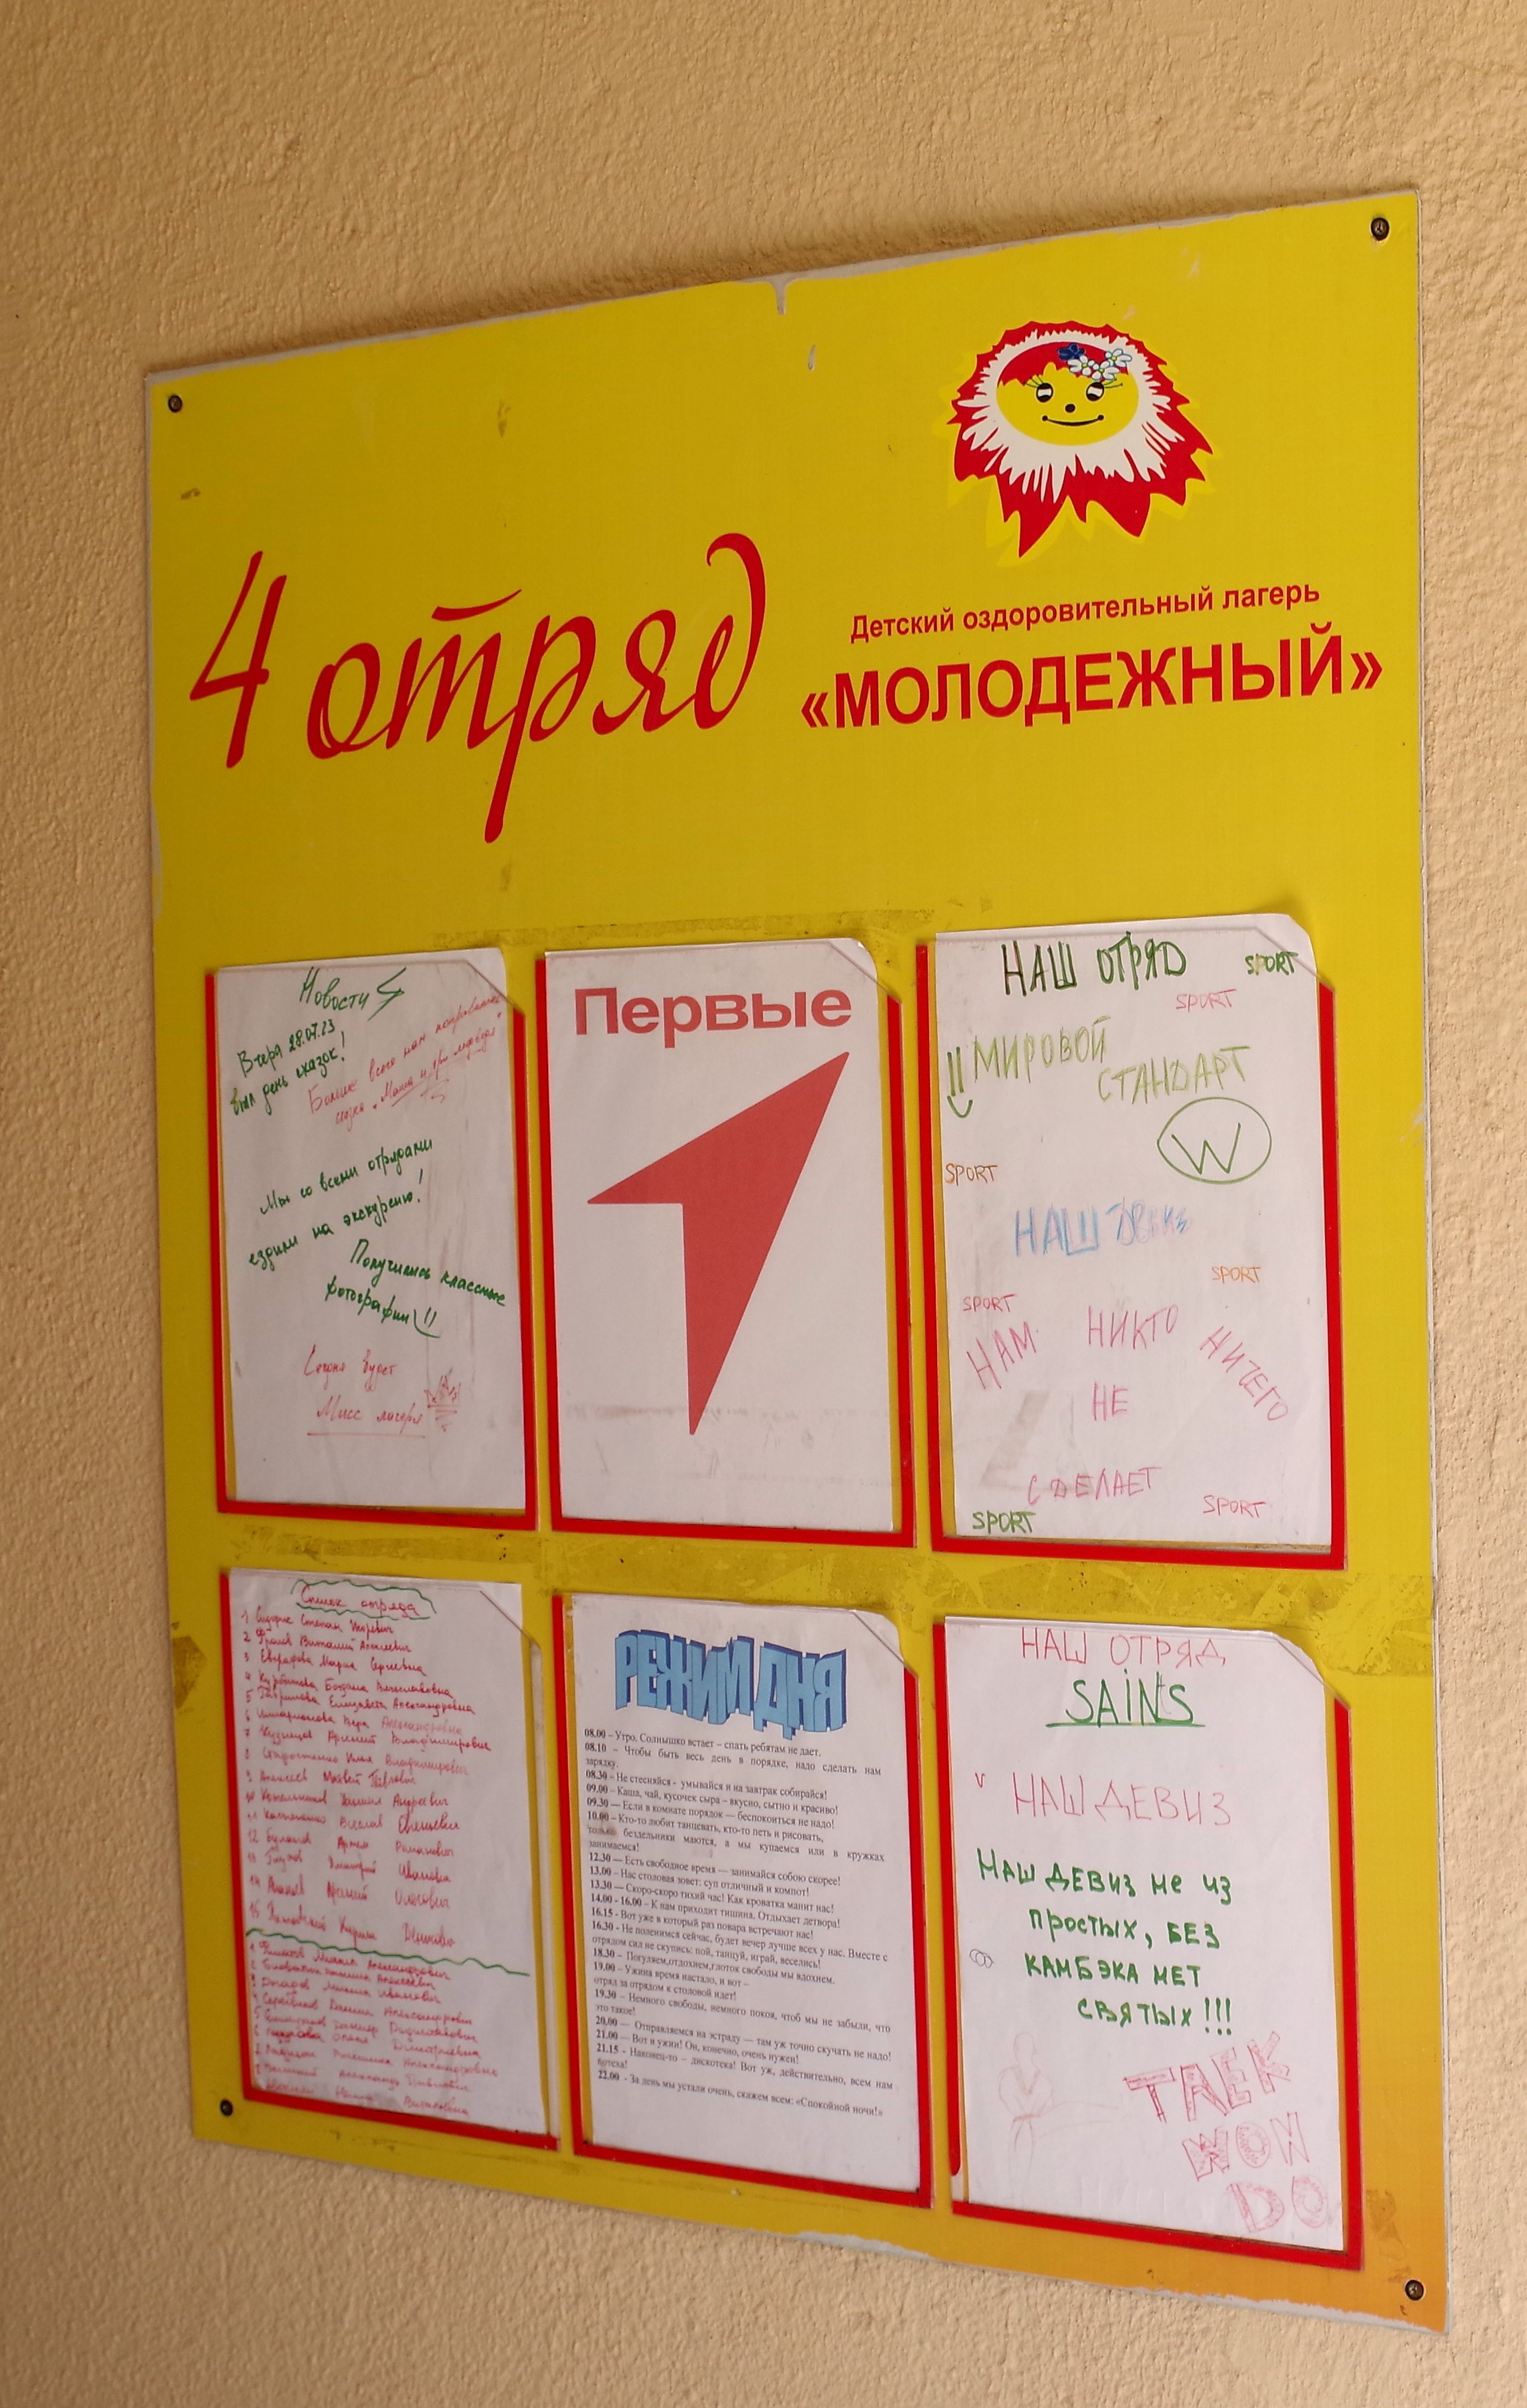 4 отряд
Детский оздоровительный лагерь
«МОЛОДЕЖНЫЙ»
Новости
Вчера 28.07.23
был день сказок!
Больше всего нам понравилась
сказка "Маша и три медведя"
Мы со всеми отрядами
ездили на экскурсию!
Получились классные
фотографии!!
Сегодня будет
Мисс лагеря
Первые
НАШ ОТРЯД
SPORT
SPORT
МИРОВОЙ
СТАНДАРТ
W
SPORT
НАШ ДЕВИЗ
SPORT
SPORT
НАМ НИКТО НИЧЕГО
НЕ
СДЕЛАЕТ
SPORT
SPORT
Список отряда
1 Степан Игоревич
2 Виталий Алексеевич
3 Евграфова Мария Сергеевна
4 Богдана Вячеславовна
5 Гаврилова Елизавета Александровна
6 Вера Александровна
7 Кузнецов Арсений Владимирович
8 Старостенко Илья Владимирович
9 Алексеев Матвей Павлович
10 Даниил Андреевич
11 Евгеньевич
12 Артём Романович
13 Дмитрий Иванович
14 Арсений Олегович
15 Кирилл
РЕЖИМ ДНЯ
08.00 – Утро. Солнышко встает – спать ребятам не дает.
08.10 – Чтобы быть весь день в порядке, надо сделать нам
зарядку.
08.30 – Не стесняйся - умывайся и на завтрак собирайся!
09.00 – Каша, чай, кусочек сыра – вкусно, сытно и красиво!
09.30 — Если в комнате порядок — беспокоиться не надо!
10.00 – Кто-то любит танцевать, кто-то петь и рисовать,
только бездельники маются, а мы купаемся или в кружках
занимаемся!
12.30 — Есть свободное время — занимайся собою скорее!
13.00 – Нас столовая зовет: суп отличный и компот!
13.30 — Скоро-скоро тихий час! Как кроватка манит нас!
14.00 - 16.00 – К нам приходит тишина. Отдыхает детвора!
16.15 - Вот уже в который раз повара встречают нас!
16.30 - Не поленимся сейчас, будет вечер лучше всех у нас. Вместе с
отрядом сил не скупись: пой, танцуй, играй, веселись!
18.30 – Погуляем,отдохнем,глоток свободы мы вдохнем.
19.00 – Ужина время настало, и вот –
отряд за отрядом к столовой идет!
19.30 – Немного свободы, немного покоя, чтоб мы не забыли, что
это такое!
20.00 — Отправляемся на эстраду — там уж точно скучать не надо!
21.00 — Вот и ужин! Он, конечно, очень нужен!
21.15 - Наконец-то – дискотека! Вот уж, действительно, всем нам
потеха!
22.00 - За день мы устали очень, скажем всем: «Спокойной ночи!»
НАШ ОТРЯД
SAINS
НАШ ДЕВИЗ
НАШ ДЕВИЗ НЕ ИЗ
ПРОСТЫХ, БЕЗ
КАМБЭКА НЕТ
СВЯТЫХ!!!
TAEK
WON
DO